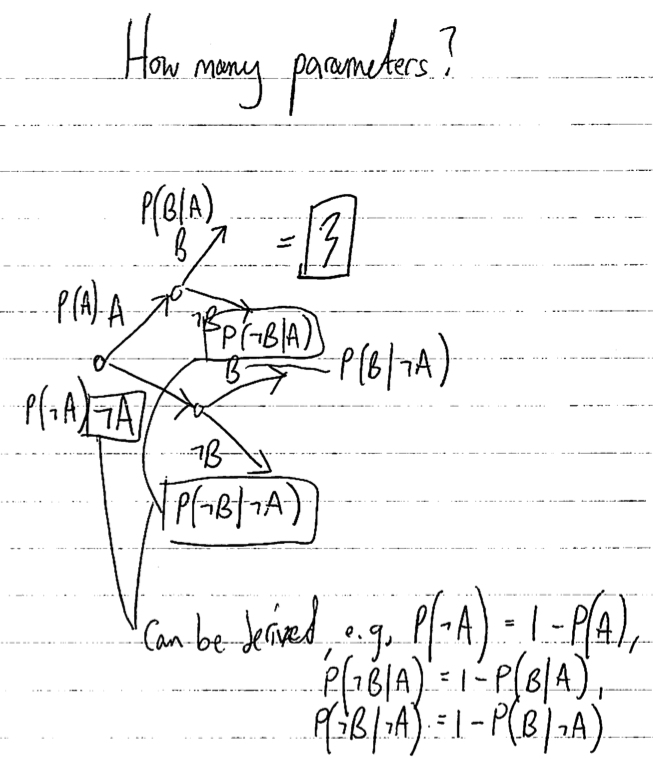 How many parameters?
P(B|A)
B
= 3
P(A) A
¬B
P(¬B|A)
B
P(B|¬A)
P(¬A) ¬A
¬B
P(¬B|¬A)
Can be derived, e.g. P(¬A) = 1 - P(A),
P(¬B|A) = 1 - P(B|A),
P(¬B|¬A) = 1 - P(B|¬A)